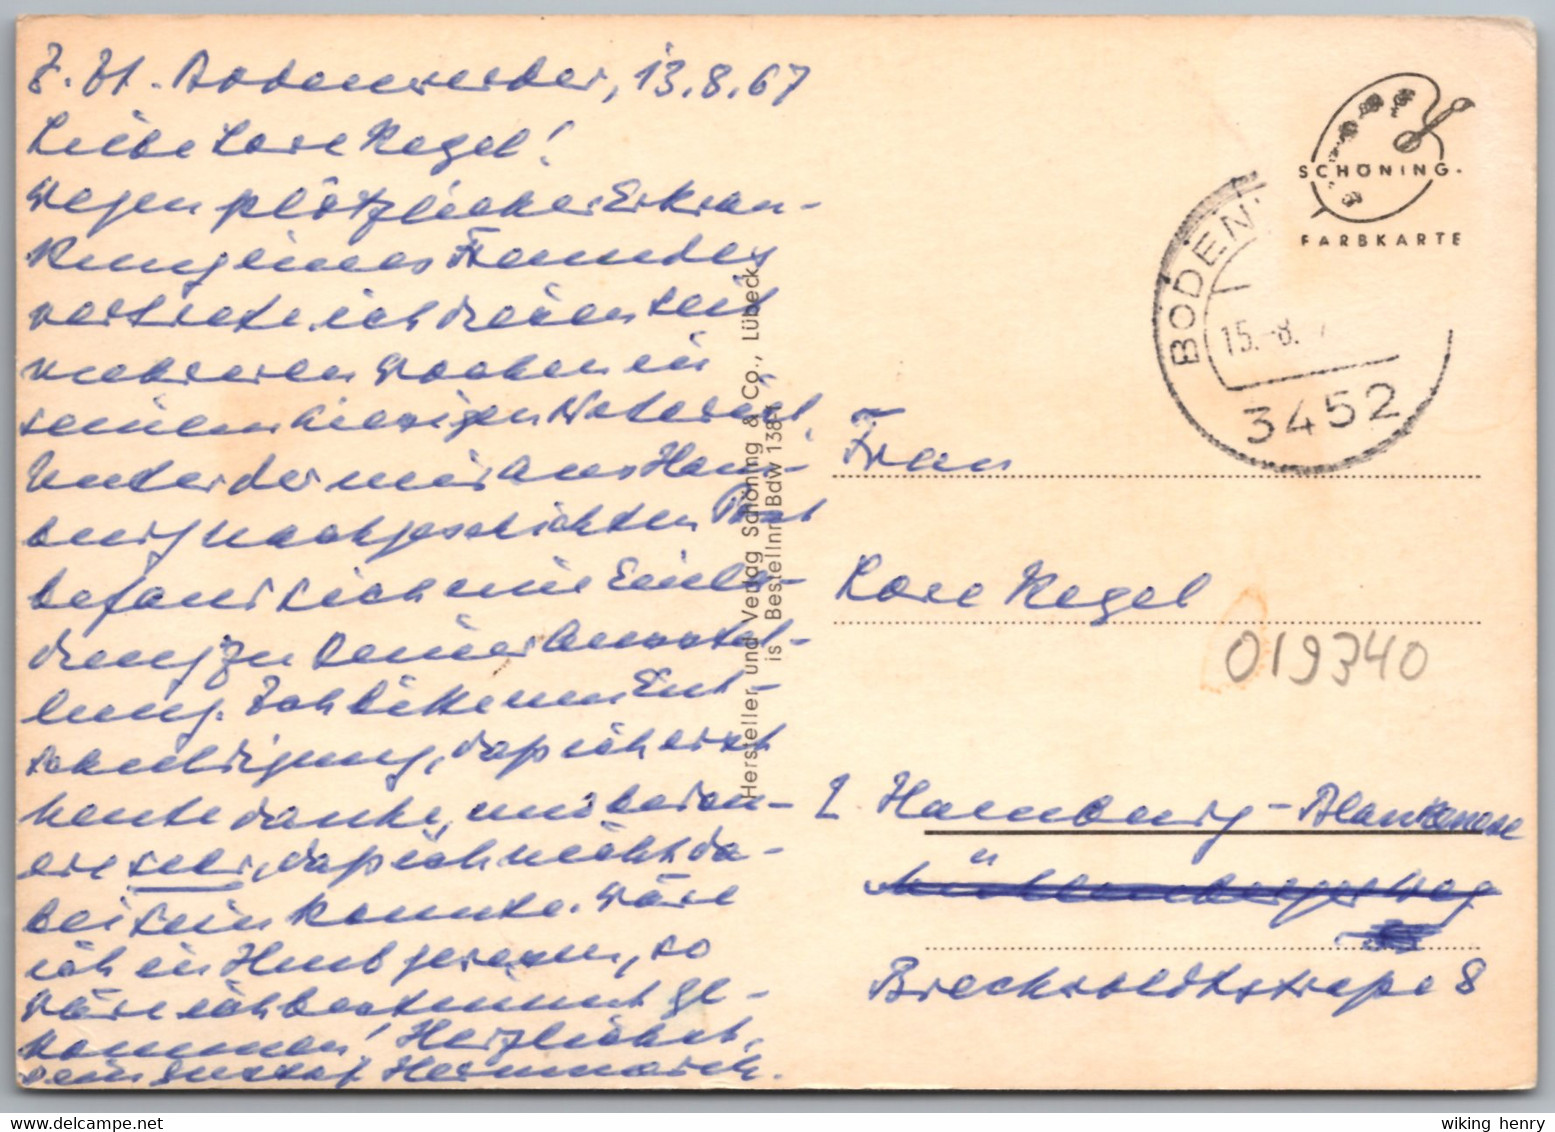 z. Zt. Bodenwerder, 13.8.67
Liebe Lore Kegel!
Wegen plötzlicher Erkran-
kung eines Freundes
vertrete ich diesen seit
mehreren Wochen in
seinem hiesigen
Unter der mir aus Ham-
burg nachgeschickten Post
befand sich eine Einla-
dung zu Deiner Ausstel-
lung. Ich bitte um Ent-
schuldigung, daß ich erst
heute danke, und bedau-
ere sehr, daß ich nicht da-
bei sein konnte. Wäre
ich in Hmb gewesen, so
wäre ich bestimmt ge-
kommen! Herzlichst,
Dein Gustaf
Hersteller und Verlag Schöning & Co., Lübeck
is Bestellnr. Bdw 138
SCHÖNING-
FARBKARTE
BODEN
15.-8.
3452
Frau
Lore Kegel
019340
2 Hamburg-Blankenese
8
wiking henry